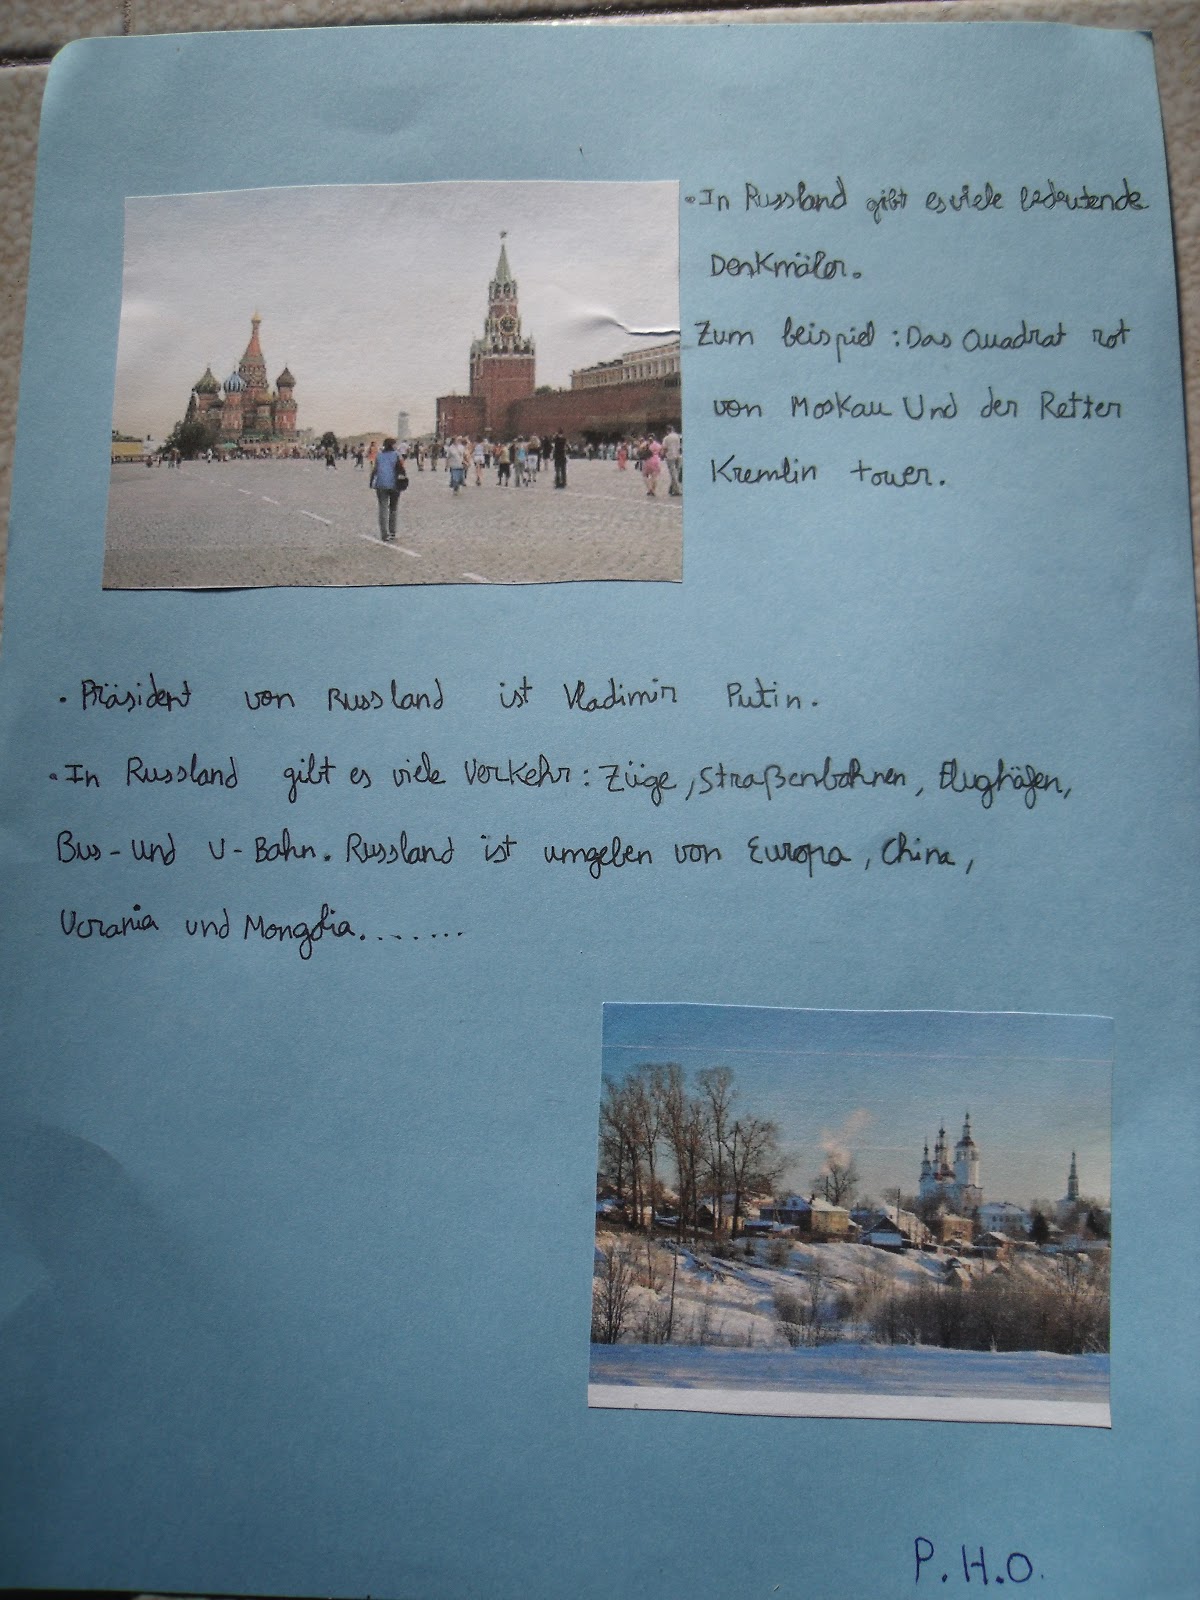 • In Russland gibt es viele bedeutende
Denkmäler.
Zum beispiel : Das Quadrat rot
von Moskau Und der Retter
Kremlin tower.
• Präsident von Russland ist Vladimir Putin.
• In Russland gibt es viele Verkehr : Züge, Straßenbahnen, Flughäfen,
Bus- Und U-Bahn. Russland ist umgeben von Europa, China,
Ucrania und Mongolia........
P.H.O.